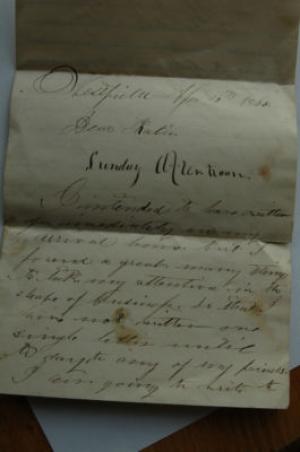 Westfield Apr 10th
Dear Katie
Sunday Afternoon.
I intended to have written
you immediately on my
arrival home but I
found a great many things
to take my attention in the
shape of business. So that I
have not written one
single letter until
to any of my friends.
I am going to write to